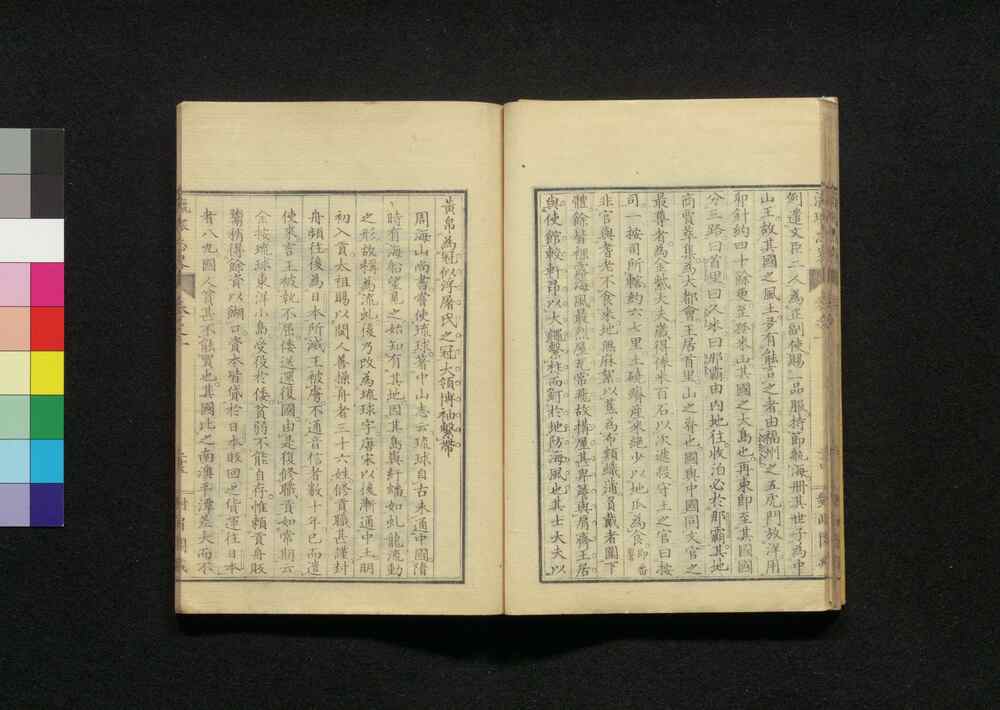 例遣文臣二人為正副使賜一品服持節航海冊其世子為中
山王故其國之風土多有能言之者由福州之五虎門放洋用
卯針約四十餘更至孫米山其國之大島也再東即至其國國
分三路曰首里曰久米曰那霸由內地往收泊必於那霸其地
商賈萃集為大都會王居首里山之脊也國與中國同文官之
最尊者為金紫大夫歲得俸米百石以次遞殺守土之官曰按
司一按司所轄約六七里土磽瘠産米絕少以地瓜為食即番薯
非官與耆老不食米地無麻絮以蕉為布類織蒲負戴者圍下
體餘皆裸露海風最烈屋瓦常飛故構屋甚卑簷與肩齊王居
與使館較軒昂以大繩繫柱而釘於地防海風也其士大夫以
黃帛為冠似浮屠氏之冠大領博袖繫帶
周海山尚書嘗使琉球著中山志云琉球自古未通中國隋
時有海船望見之始知有其地因其島輿紆蟠如虬龍流動
之形故稱為流虬後乃改為琉球字唐宋以後漸通中土明
初入貢太祖賜以閩人善操舟者三十六姓修貢職甚謹封
舟頻往後為日本所滅王被虜不通音信者數十年已而遣
使來言王被執不屈倭送還復國由是復修職貢如常期云
余按琉球東洋小島受役於倭貧弱不能自存惟賴貢舟販
鬻稍得餘資以餬口資本皆貸於日本販回之貨運往日本
者八九國人貧甚不能買也其國北之南澳平潭差大而不